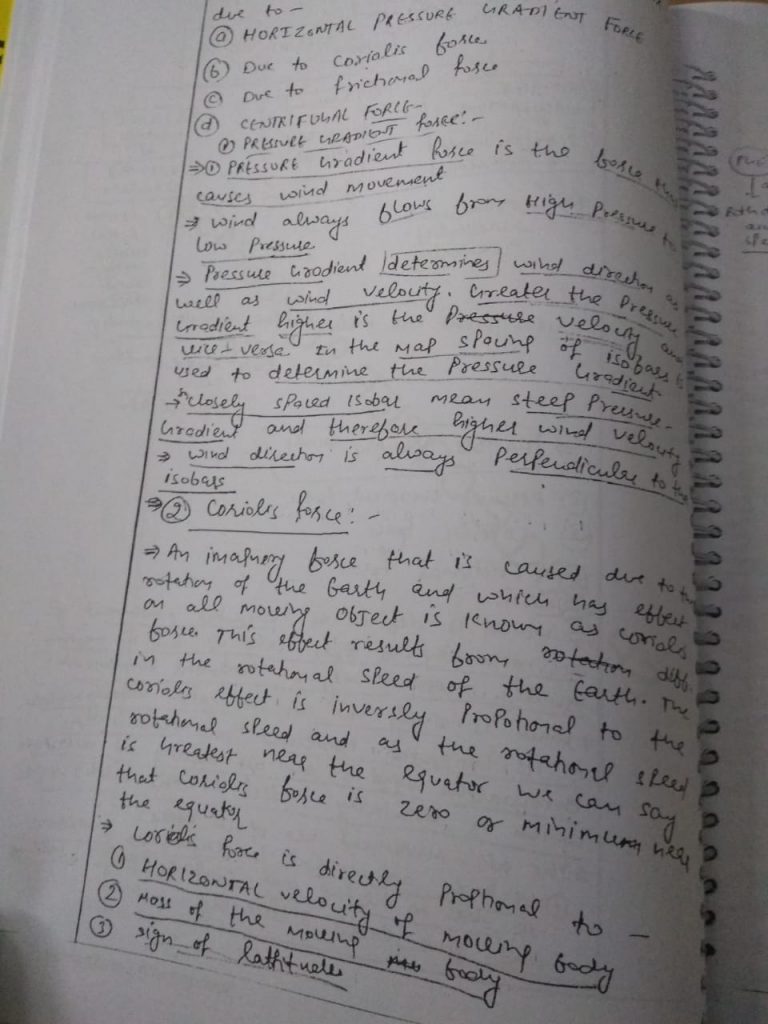 due to -
(a) HORIZONTAL PRESSURE GRADIENT FORCE
(b) Due to corialis force
(c) Due to frictional force
(d) CENTRIFUGAL FORCE-
(1) PRESSURE GRADIENT force:-
⇒① PRESSURE Gradient force is the force that
causes wind movement
⇒ wind always flows from High Pressure to
Low Pressure
⇒ Pressure Gradient determines wind direction as
well as wind velocity. Greater the Pressure
Gradient higher is the Pressure velocity and
vice-versa In the map spacing of isobars is
used to determine the Pressure Gradient
→ closely spaced isobar mean steep Pressure-
Gradient and therefore higher wind velocity
⇒ wind direction is always Perpendicular to the
isobars
⇒② Coriolis force:-
⇒ An imaginary force that is caused due to the
rotation of the Earth and which has effect
on all moving object is known as coriolis
force. This effect results from rotation diff.
in the rotational speed of the Earth. The
coriolis effect is inversly Propotional to the
rotational speed and as the rotational speed
is Greatest near the equator we can say
that coriolis force is zero or minimum near
the equator
⇒ Coriolis force is directly Proptional to -
① HORIZONTAL velocity of moving body
② Mass of the moving body
③ sign of lattitudes